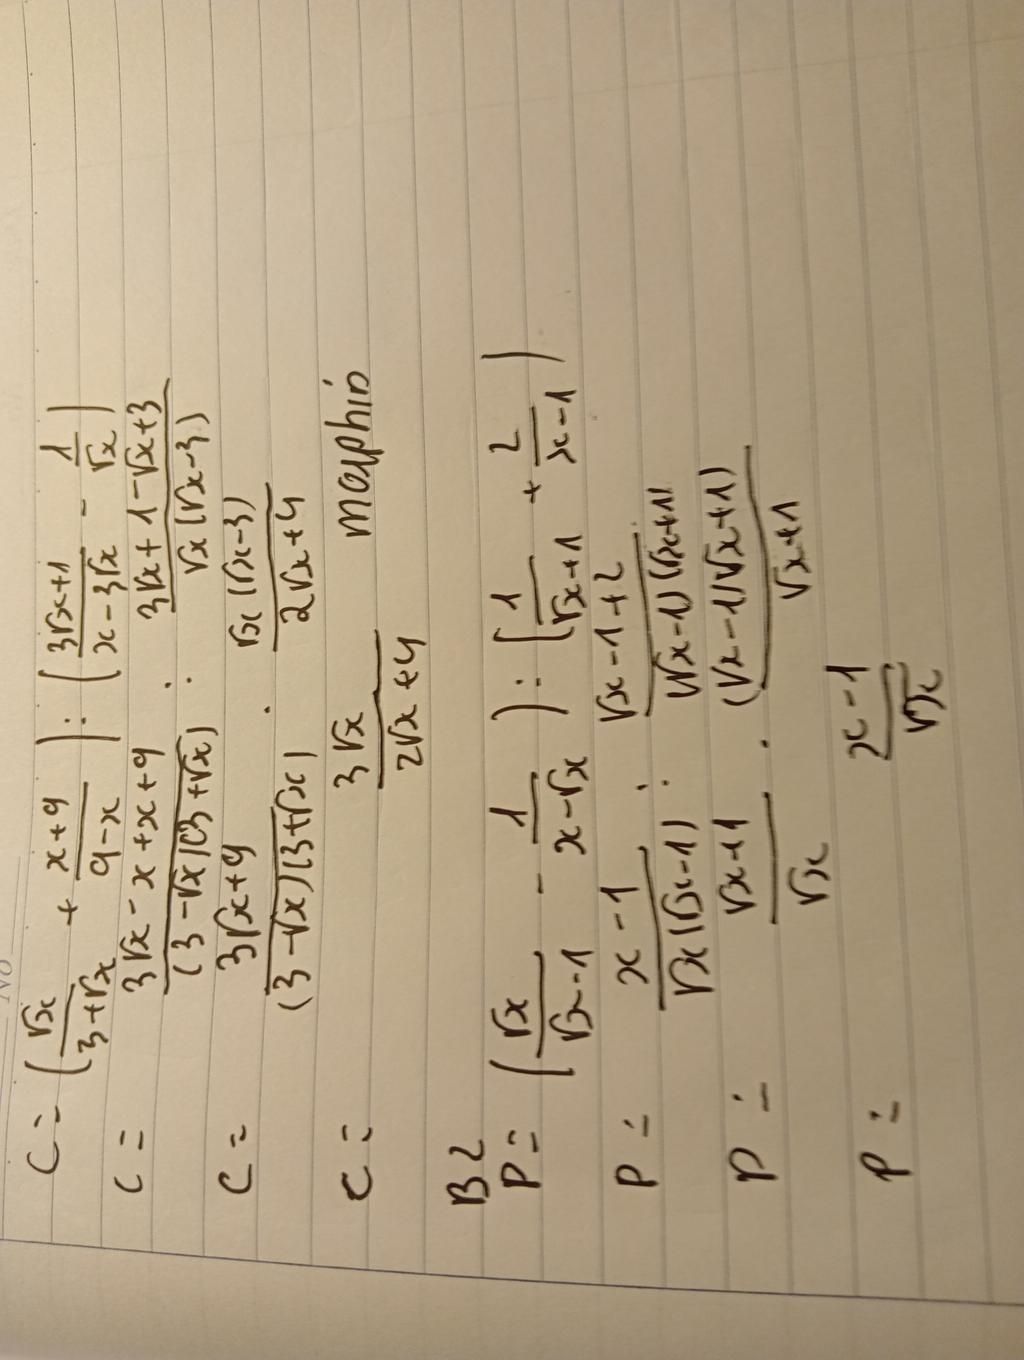 No
C = (√x/(3+√x) + (x+9)/(9-x)) : ((3√x+1)/(x-3√x) - 1/√x)
C = (3√x - x + x + 9)/((3-√x)(3+√x)) : (3√x+1-√x+3)/(√x(√x-3))
C = (3√x+9)/((3-√x)(3+√x)) . √x(√x-3)/(2√x+4)
C = 3√x/(2√x+4) morphin
B2
P = (√x/(√x-1) - 1/(x-√x)) : (1/(√x+1) + 2/(x-1))
P = (x-1)/(√x(√x-1)) : (√x-1+2)/((√x-1)(√x+1))
P = (√x+1)/√x . (√x-1)(√x+1)/(√x+1)
P = (x-1)/√x